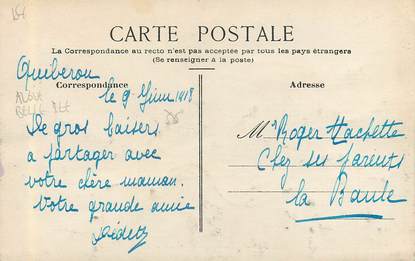 CARTE POSTALE
La Correspondance au recto n'est pas acceptée par tous les pays étrangers
(Se renseigner à la poste)
Quiberon
Correspondance
Adresse
le 9 Juin 1918
De gros baisers
a partager avec
votre chère maman.
Votre grande amie
Mr Roger Hachette
Chez ses parents
la Baule